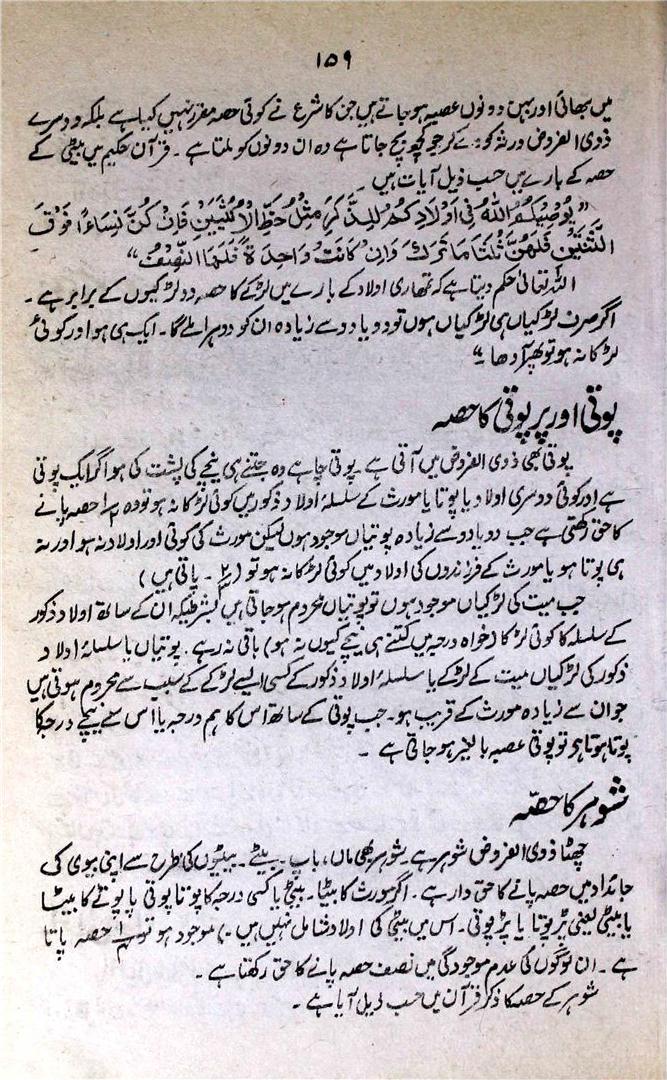 ۱۵۹
میں بھائی اور بہن دونوں عصبہ ہو جاتے ہیں جن کا شرع نے کوئی حصہ مقرر نہیں کیا ہے بلکہ دوسرے
ذوی الفروض ورثہ کو دے کر جو کچھ بچ جاتا ہے وہ ان دونوں کو ملتا ہے ۔ قرآن حکیم میں بیٹی کے
حصہ کے بارے میں حسب ذیل آیات ہیں ۔
”یُوْصِیْكُمُ اللّٰهُ فِیْ اَوْلَادِكُمْ لِلذَّكَرِ مِثْلُ حَظِّ الْاُنْثَیَیْنِ فَاِنْ كُنَّ نِسَاءً فَوْقَ
اثْنَتَیْنِ فَلَهُنَّ ثُلُثَا مَا تَرَكَ وَاِنْ كَانَتْ وَاحِدَةً فَلَهَا النِّصْفُ“
اللہ تعالیٰ حکم دیتا ہے کہ تمھاری اولاد کے بارے میں لڑکے کا حصہ دو لڑکیوں کے برابر ہے ۔
اگر صرف لڑکیاں ہی لڑکیاں ہوں تو دو یا دو سے زیادہ ان کو دوہرا ملے گا ۔ ایک ہی ہو اور کوئی
لڑکا نہ ہو تو پھر آدھا ۔“
پوتی اور پرپوتی کا حصہ
پوتی بھی ذوی الفروض میں آتی ہے ۔ پوتی چاہے وہ جتنے ہی نیچے کی پشت کی ہو اگر ایک پوتی
ہے اور کوئی دوسری اولاد یا پوتا یا مورث کے سلسلۂ اولاد ذکور میں کوئی لڑکا نہ ہو تو وہ ۱/۲ حصہ پانے
کا حق رکھتی ہے جب دو یا دو سے زیادہ پوتیاں موجود ہوں لیکن مورث کی کوئی اور اولاد نہ ہو اور نہ
ہی پوتا ہو یا مورث کے فرزندوں کی اولاد میں کوئی لڑکا نہ ہو تو ( ۲/۳ ۔ پاتی ہیں )
جب میت کی لڑکیاں موجود ہوں تو پوتیاں محروم ہو جاتی ہیں بشرطیکہ ان کے ساتھ اولاد ذکور
کے سلسلہ کا کوئی لڑکا (خواہ درجہ میں کتنے ہی نیچے کیوں نہ ہو) باقی نہ رہے ۔ پوتیاں یا سلسلۂ اولاد
ذکور کی لڑکیاں میت کے لڑکے یا سلسلۂ اولاد ذکور کے کسی ایسے لڑکے کے سبب سے محروم ہوتی ہیں
جو ان سے زیادہ مورث کے قریب ہو ۔ جب پوتی کے ساتھ اس کا ہم درجہ یا اس سے نیچے درجہ کا
پوتا ہوتا ہو تو پوتی عصبہ بالغیر ہو جاتی ہے ۔
شوہر کا حصہ
چھٹا ذوی الفروض شوہر ہے ۔ شوہر بھی ماں، باپ ۔ بیٹے ۔ بیٹیوں کی طرح سے اپنی بیوی کی
جائداد میں حصہ پانے کا حق دار ہے ۔ اگر مورث کا بیٹا ۔ بیٹی یا کسی درجہ کا پوتا پوتی یا پوتے کا بیٹا
یا بیٹی یعنی پڑپوتا یا پڑپوتی ۔ اس میں بیٹی کی اولاد شامل نہیں ہیں ۔) موجود ہو تو ۱/۴ حصہ پاتا
ہے ۔ ان لوگوں کی عدم موجودگی میں نصف حصہ پانے کا حق رکھتا ہے ۔
شوہر کے حصہ کا ذکر قرآن میں حسب ذیل آیا ہے ۔